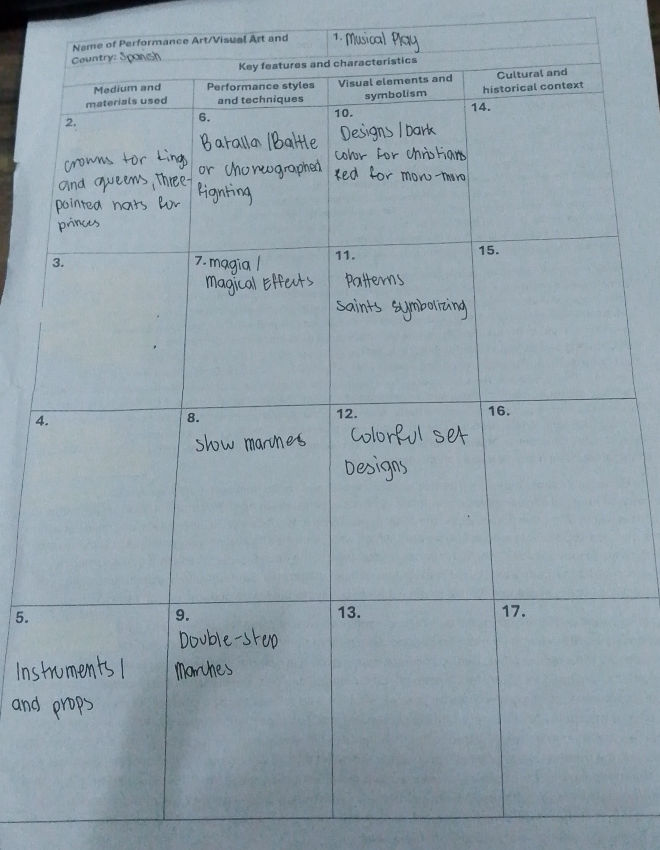 Name of Performance Art/Visual Art and
Country: Spanish
1. Musical Play
Key features and characteristics
Medium and
materials used
Performance styles
and techniques
Visual elements and
symbolism
Cultural and
historical context
2.
crowns for kings
and queens, Three-
pointed hats for
princes
6.
Batalla / Battle
or Choreographed
Fignting
10.
Designs / Dark
color for christians
red for moro-moro
14.
3.
7. magia /
magical Effects
11.
Patterns
Saints symbolizing
15.
4.
8.
Slow marches
12.
Colorful set
Designs
16.
5.
Instruments /
and props
9.
Double-step
Marches
13.
17.